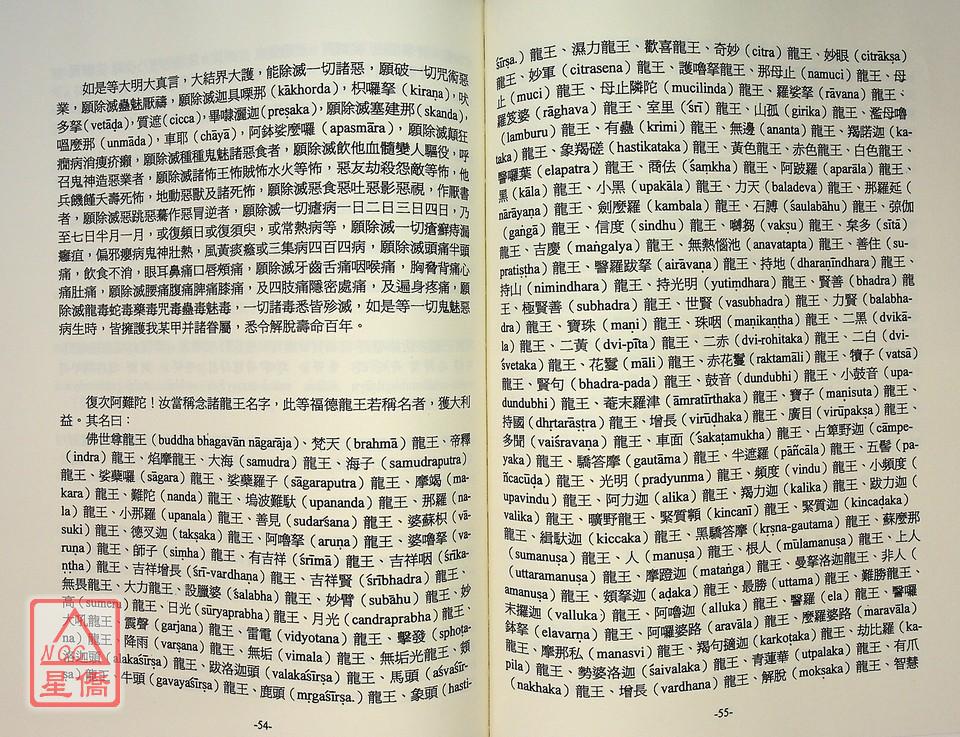 如是等大明大真言，大結界大護，能除滅一切諸惡，願破一切咒術惡
業，願除滅蠱魅厭禱，願除滅迦具㗚那（kākhorda），枳囉拏（kiraṇa），吠
多拏（vetāḍa），質遮（cicca），畢㘑灑迦（preṣaka），願除滅塞建那（skanda），
嗢麼那（unmāda），車耶（chāyā），阿鉢娑麼囉（apasmāra），願除滅癲狂
癇病消瘦疥癩，願除滅種種鬼魅諸惡食者，願除滅飲他血髓變人驅役，呼
召鬼神造惡業者，願除滅諸怖王怖賊怖水火等怖，惡友劫殺怨敵等怖，他
兵饑饉夭壽死怖，地動惡獸及諸死怖，願除滅惡食惡吐惡影惡視，作厭書
者，願除滅惡跳惡驀作惡冒逆者，願除滅一切瘧病一日二日三日四日，乃
至七日半月一月，或復頻日或復須臾，或常熱病等，願除滅一切瘡癬痔漏
癰疽，偏邪癭病鬼神壯熱，風黃痰癊或三集病四百四病，願除滅頭痛半頭
痛，飲食不消，眼耳鼻痛口唇頰痛，願除滅牙齒舌痛咽喉痛，胸脅背痛心
痛肚痛，願除滅腰痛腹痛脾痛膝痛，及四肢痛隱密處痛，及遍身疼痛，願
除滅龍毒蛇毒藥毒咒毒蠱毒魅毒，一切諸毒悉皆殄滅，如是等一切鬼魅惡
病生時，皆擁護我某甲并諸眷屬，悉令解脫壽命百年。
復次阿難陀！汝當稱念諸龍王名字，此等福德龍王若稱名者，獲大利
益。其名曰：
佛世尊龍王（buddha bhagavān nāgarāja）、梵天（brahmā）龍王、帝釋
（indra）龍王、焰摩龍王、大海（samudra）龍王、海子（samudraputra）
龍王、娑蘖囉（sāgara）龍王、娑蘖羅子（sāgaraputra）龍王、摩竭（ma-
kara）龍王、難陀（nanda）龍王、塢波難馱（upananda）龍王、那羅（na-
la）龍王、小那羅（upanala）龍王、善見（sudarśana）龍王、婆蘇枳（vā-
suki）龍王、德叉迦（takṣaka）龍王、阿嚕拏（aruṇa）龍王、婆嚕拏（va-
ruṇa）龍王、師子（siṃha）龍王、有吉祥（śrīmā）龍王、吉祥咽（śrīka-
ṇṭha）龍王、吉祥增長（śrī-vardhaṇa）龍王、吉祥賢（śrībhadra）龍王、
無畏龍王、大力龍王、設臘婆（śalabha）龍王、妙臂（subāhu）龍王、妙
高（sumeru）龍王、日光（sūryaprabha）龍王、月光（candraprabha）龍王、
大吼龍王、震聲（garjana）龍王、雷電（vidyotana）龍王、擊發（sphota-
na）龍王、降雨（varṣana）龍王、無垢（vimala）龍王、無垢光龍王、頞
洛迦頭（alakaśīrṣa）龍王、跋洛迦頭（valakaśīrṣa）龍王、馬頭（aśvaśīr-
ṣa）龍王、牛頭（gavayaśīrṣa）龍王、鹿頭（mṛgaśīrṣa.）龍王、象頭（hasti-
-54-
śīrṣa.）龍王、濕力龍王、歡喜龍王、奇妙（citra）龍王、妙眼（citrākṣa）
龍王、妙軍（citrasena）龍王、護嚕拏龍王、那母止（namuci）龍王、母
止（muci）龍王、母止隣陀（mucilinda）龍王、羅娑拏（rāvana）龍王、
羅笈婆（rāghava）龍王、室里（śrī）龍王、山孤（girika）龍王、濫母嚕
（lamburu）龍王、有蟲（krimi）龍王、無邊（ananta）龍王、羯諾迦（ka-
taka）龍王、象羯磋（hastikataka）龍王、黃色龍王、赤色龍王、白色龍王、
醫囉葉（elapatra）龍王、商佉（śaṃkha）龍王、阿跛羅（aparāla）龍王、
黑（kāla）龍王、小黑（upakāla）龍王、力天（baladeva）龍王、那羅延（
nārāyaṇa）龍王、劍麼羅（kambala）龍王、石膊（śaulabāhu）龍王、弶伽
（gaṅgā）龍王、信度（sindhu）龍王、嚩芻（vakṣu）龍王、枲多（sītā）
龍王、吉慶（maṅgalya）龍王、無熱惱池（anavatapta）龍王、善住（su-
pratiṣṭha）龍王、醫羅跋拏（airāvaṇa）龍王、持地（dharaṇīndhara）龍王、
持山（nimindhara）龍王、持光明（yutiṃdhara）龍王、賢善（bhadra）龍
王、極賢善（subhadra）龍王、世賢（vasubhadra）龍王、力賢（balabha-
dra）龍王、寶珠（maṇi）龍王、珠咽（maṇikaṇṭha）龍王、二黑（dvikā-
la）龍王、二黃（dvi-pīta）龍王、二赤（dvi-rohitaka）龍王、二白（dvi-
śvetaka）龍王、花鬘（māli）龍王、赤花鬘（raktamāli）龍王、犢子（vatsā）
龍王、賢句（bhadra-pada）龍王、鼓音（dundubhi）龍王、小鼓音（upa-
dundubhi）龍王、菴末羅津（āmratīrthaka）龍王、寶子（maṇisuta）龍王、
持國（dhṛtarāṣtra）龍王、增長（virūḍhaka）龍王、廣目（virūpakṣa）龍王、
多聞（vaiśravaṇa）龍王、車面（śakaṭamukha）龍王、占箄野迦（cāmpe-
yaka）龍王、驕答摩（gautāma）龍王、半遮羅（pāñcāla）龍王、五髻（pa-
ñcacūḍa）龍王、光明（pradyunma）龍王、頻度（vindu）龍王、小頻度（
upavindu）龍王、阿力迦（alika）龍王、羯力迦（kalika）龍王、跋力迦（
valika）龍王、曠野龍王、緊質顙（kincanī）龍王、緊質迦（kincaḍaka）
龍王、緝馱迦（kiccaka）龍王、黑驕答摩（kṛṣṇa-gautama）龍王、蘇麼那
（sumanuṣa）龍王、人（manuṣa）龍王、根人（mūlamanuṣa）龍王、上人
（uttaramanuṣa）龍王、摩蹬迦（mataṅga）龍王、曼拏洛迦龍王、非人（
amanuṣa）龍王、頞拏迦（aḍaka）龍王、最勝（uttama）龍王、難勝龍王、
末攞迦（valluka）龍王、阿嚕迦（alluka）龍王、醫羅（ela）龍王、醫囉
鉢拏（elavarṇa）龍王、阿囉婆路（aravāla）龍王、麼羅婆路（maravāla）
龍王、摩那私（manasvi）龍王、羯句鏸迦（karkoṭaka）龍王、劫比羅（ka-
pila）龍王、勢婆洛迦（śaivalaka）龍王、青蓮華（utpalaka）龍王、有爪
（nakhaka）龍王、增長（vardhana）龍王、解脫（mokṣaka）龍王、智慧
-55-
NCC
星僑